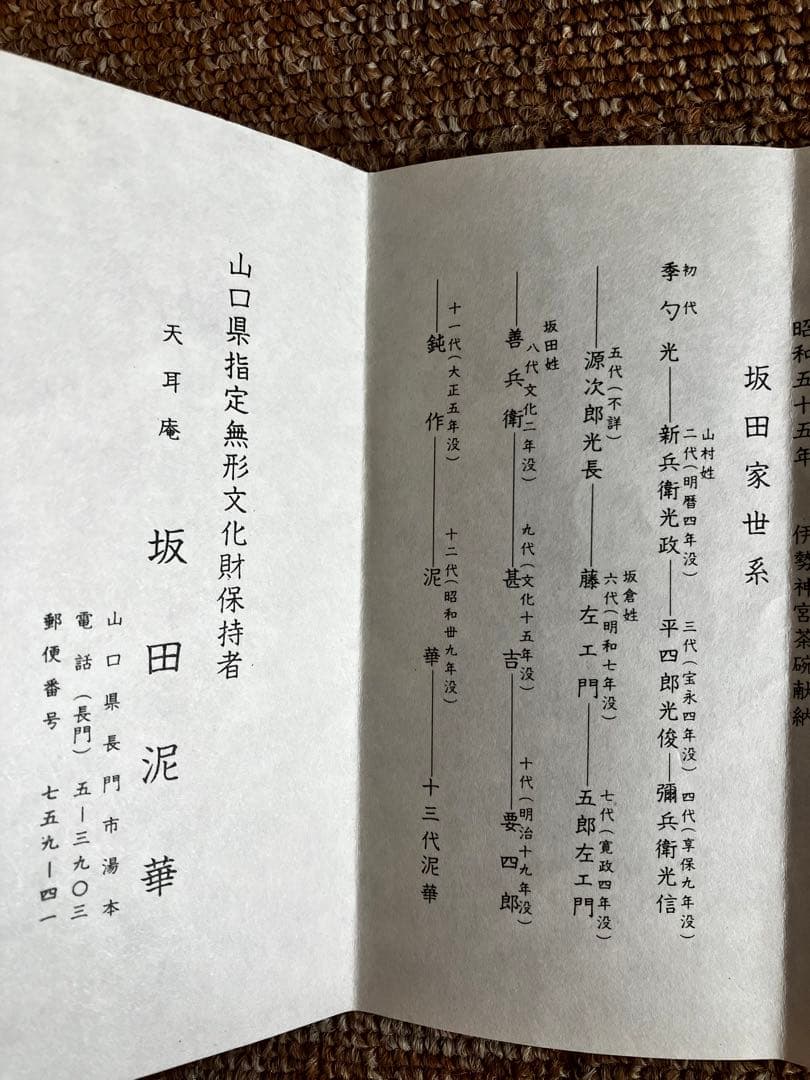 昭和五十五年　伊勢神宮茶碗献納
坂田家世系
山村姓
初代　二代(明暦四年没)　三代(宝永四年没)　四代(享保九年没)
季勺光―新兵衛光政―平四郎光俊―彌兵衛光信
坂倉姓
五代(不詳)　六代(明和七年没)　七代(寛政四年没)
―源次郎光長―藤左エ門―五郎左エ門
坂田姓
八代文化二年没)　九代(文化十五年没)　十代(明治十九年没)
―善兵衛―甚吉―要四郎
十一代(大正五年没)　十二代(昭和卅九年没)
―鈍作―泥華―十三代泥華
山口県指定無形文化財保持者
天耳庵　坂田泥華
山口県長門市湯本
電話(長門)五―三九〇三
郵便番号　七五九―四一